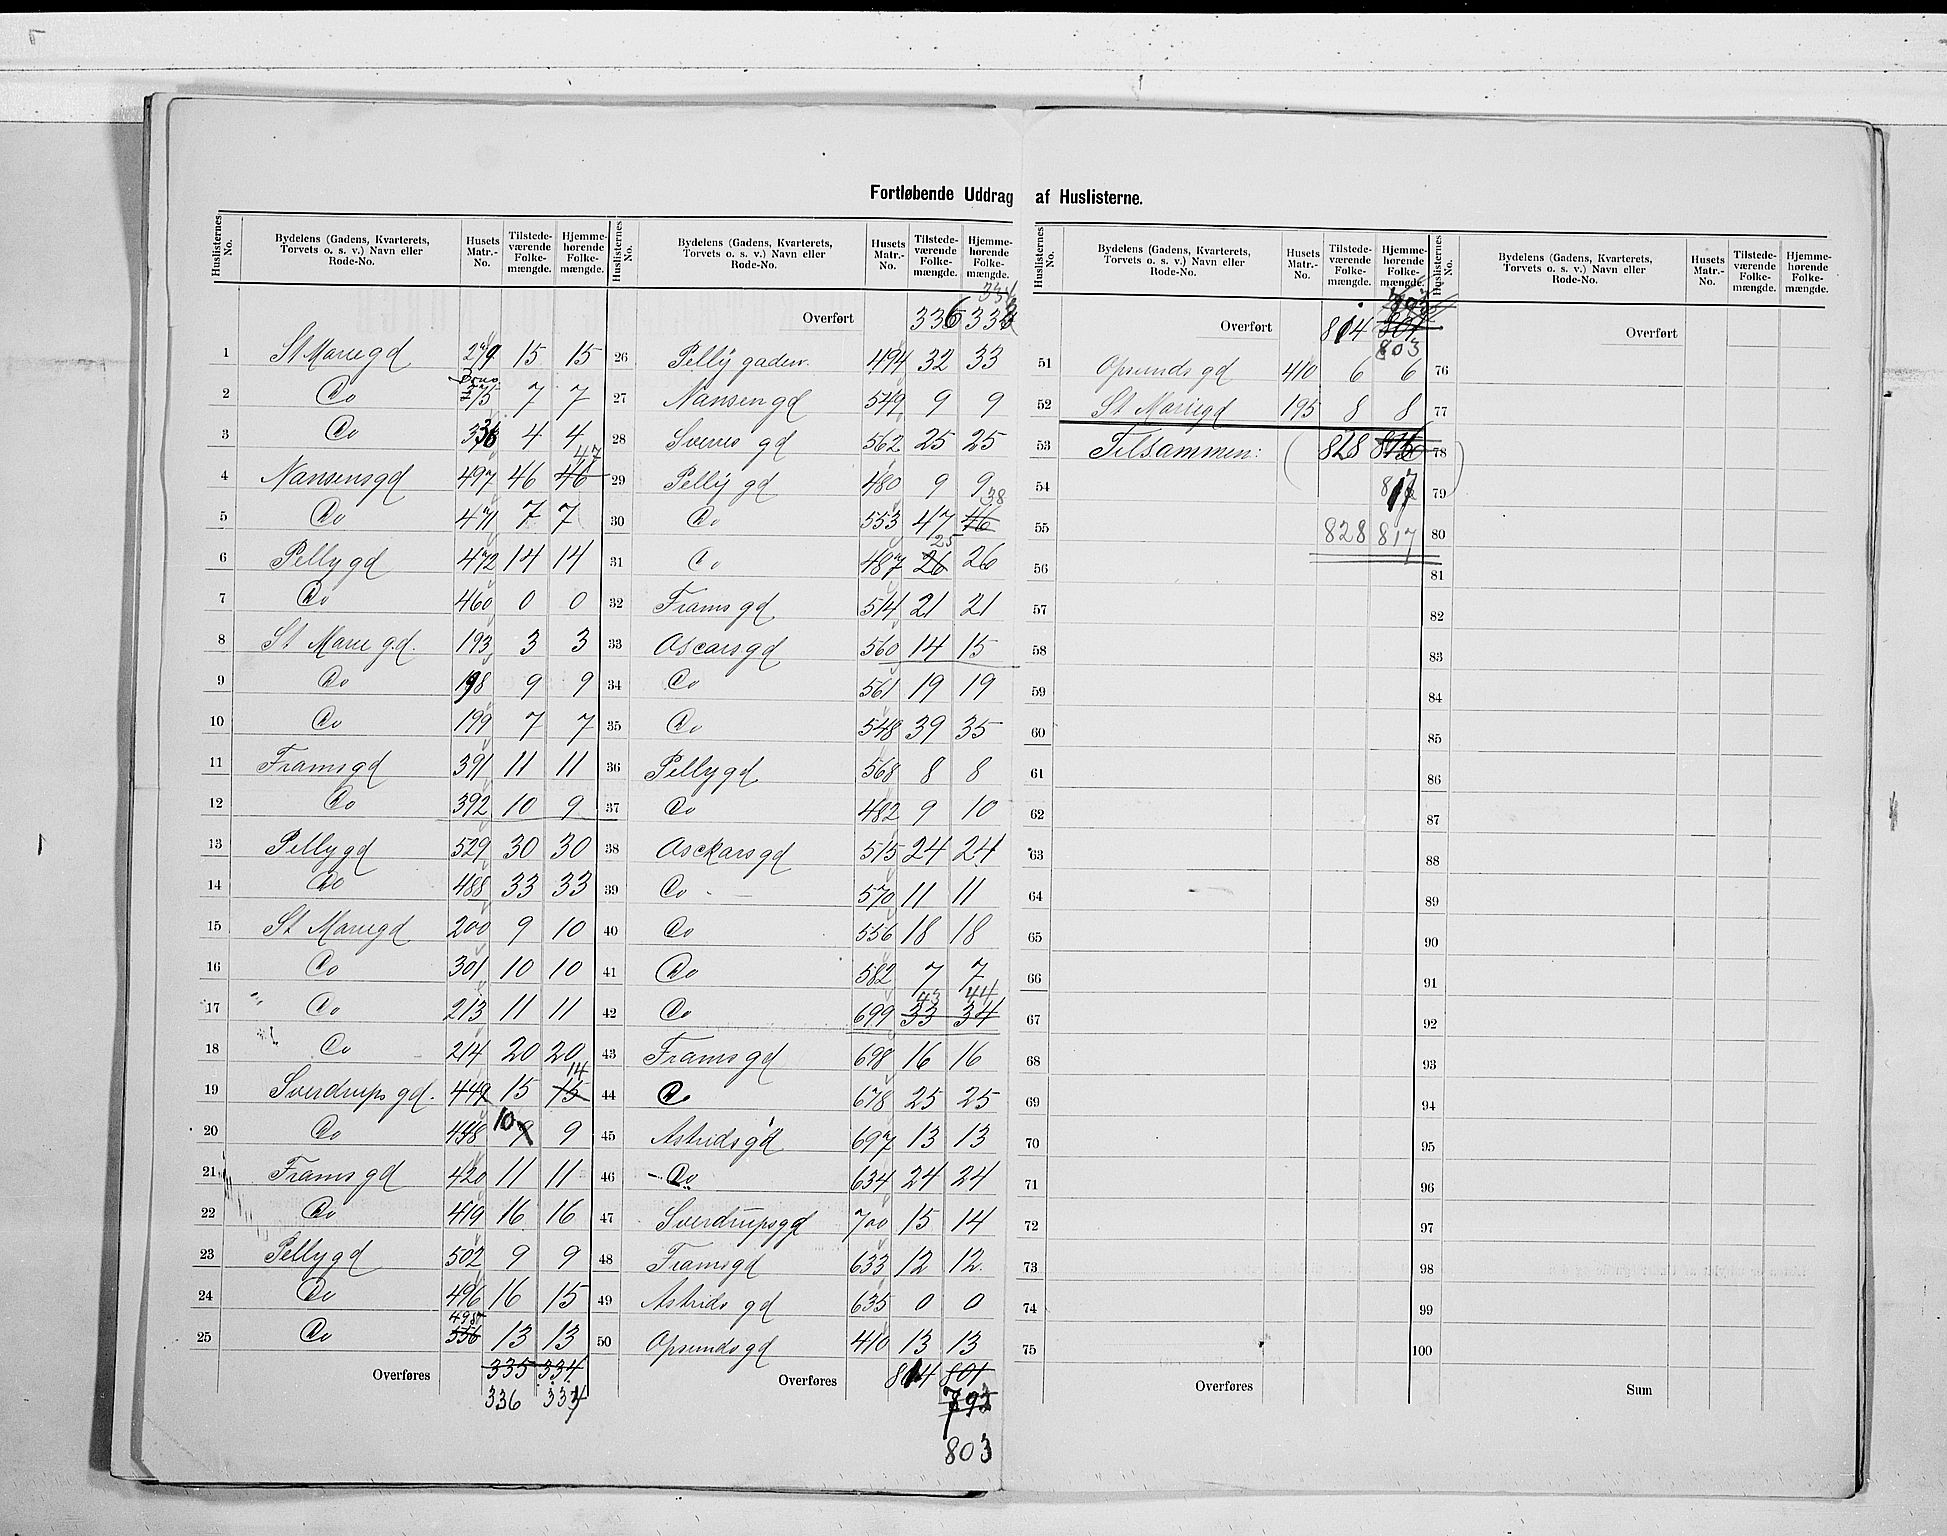 Fortløbende Uddrag af Huslisterne.
Huslisternes No. | Bydelens (Gadens, Kvarterets, Torvets o. s. v.) Navn eller Rode-No. | Husets Matr.-No. | Tilstedeværende Folkemængde. | Hjemmehørende Folkemængde.
1 St Mariegd 15 15
2 Do 7 7
3 Do 4 4
4 Nansensgd 497 46 46 47
5 Do 471 7 7
6 Pellygd 472 14 14
7 Do 460 0 0
8 St Marie gd. 193 3 3
9 Do 198 9 9
10 Do 199 7 7
11 Framsgd 391 11 11
12 Do 392 10 9
13 Pellygd 529 30 30
14 Do 488 33 33
15 St Mariegd 200 9 10
16 Do 301 10 10
17 Do 213 11 11
18 Do 214 20 20
19 Sverdrups gd. 449 15 15 14
20 Do 448 10 9 9
21 Framsgd 420 11 11
22 Do 419 16 16
23 Pellygd 502 9 9
24 Do 496 16 15
25 Do 556 498 13 13
Overføres 335 334
336 334
Huslisternes No. | Bydelens (Gadens, Kvarterets, Torvets o. s. v.) Navn eller Rode-No. | Husets Matr.-No. | Tilstedeværende Folkemængde. | Hjemmehørende Folkemængde.
Overført 336 334
26 Pelly gaden. 494 32 33
27 Nansengd 549 9 9
28 Sverres gd 562 25 25
29 Pelly gd 480 9 9
30 Do 553 47 46 38
31 Do 487 26 25 26
32 Framsgd 514 21 21
33 Oscarsgd 560 14 15
34 Do 561 19 19
35 Do 548 39 35
36 Pellygd 568 8 8
37 Do 482 9 10
38 Osckarsgd 515 24 24
39 Do 570 11 11
40 Do 556 18 18
41 Do 582 7 7
42 Do 699 33 43 34 44
43 Framsgd 698 16 16
44 Do 678 25 25
45 Astridsgd 697 13 13
46 Do 634 24 24
47 Sverdrupsgd 700 15 14
48 Framsgd 633 12 12
49 Astrids gd 635 0 0
50 Opsundsgd 410 13 13
Overføres 814 801
793
803
Huslisternes No. | Bydelens (Gadens, Kvarterets, Torvets o. s. v.) Navn eller Rode-No. | Husets Matr.-No. | Tilstedeværende Folkemængde. | Hjemmehørende Folkemængde.
Overført 814 801
803
51 Opsunds gd 410 6 6
52 St Mariegd 195 8 8
53 Tilsammen: 828
54 817
55 828 817
56
57
58
59
60
61
62
63
64
65
66
67
68
69
70
71
72
73
74
75
Overføres
Huslisternes No. | Bydelens (Gadens, Kvarterets, Torvets o. s. v.) Navn eller Rode-No. | Husets Matr.-No. | Tilstedeværende Folkemængde. | Hjemmehørende Folkemængde.
Overført
76
77
78
79
80
81
82
83
84
85
86
87
88
89
90
91
92
93
94
95
96
97
98
99
100
Sum